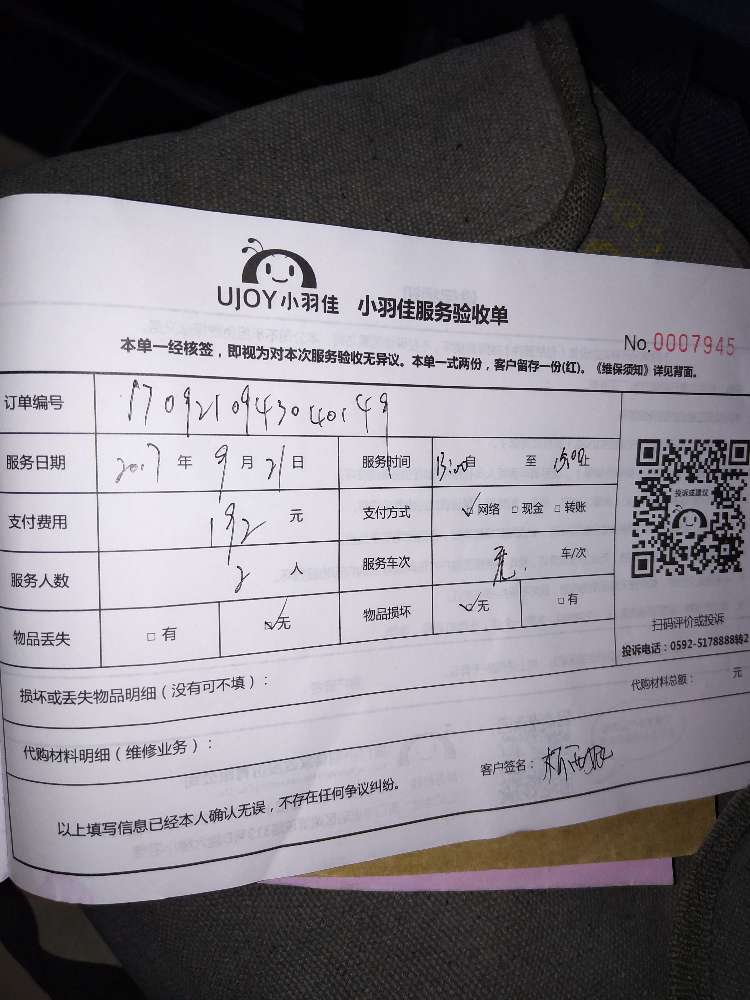 UJOY小羽佳 小羽佳服务验收单
No.0007945
本单一经核签，即视为对本次服务验收无异议。本单一式两份，客户留存一份(红)。《维保须知》详见背面。
订单编号 170921094304014
服务日期 2017 年 9 月 21 日 服务时间 13:00 自 至 15:00 止
支付费用 192 元 支付方式 ☑网络 □现金 □转账
服务人数 2 人 服务车次 无 车/次
物品丢失 □有 ☑无 物品损坏 ☑无 □有
投诉或建议
扫码评价或投诉
投诉电话：0592-5178888转2
损坏或丢失物品明细（没有可不填）：
代购材料总额： 元
代购材料明细（维修业务）：
客户签名：
以上填写信息已经本人确认无误，不存在任何争议纠纷。